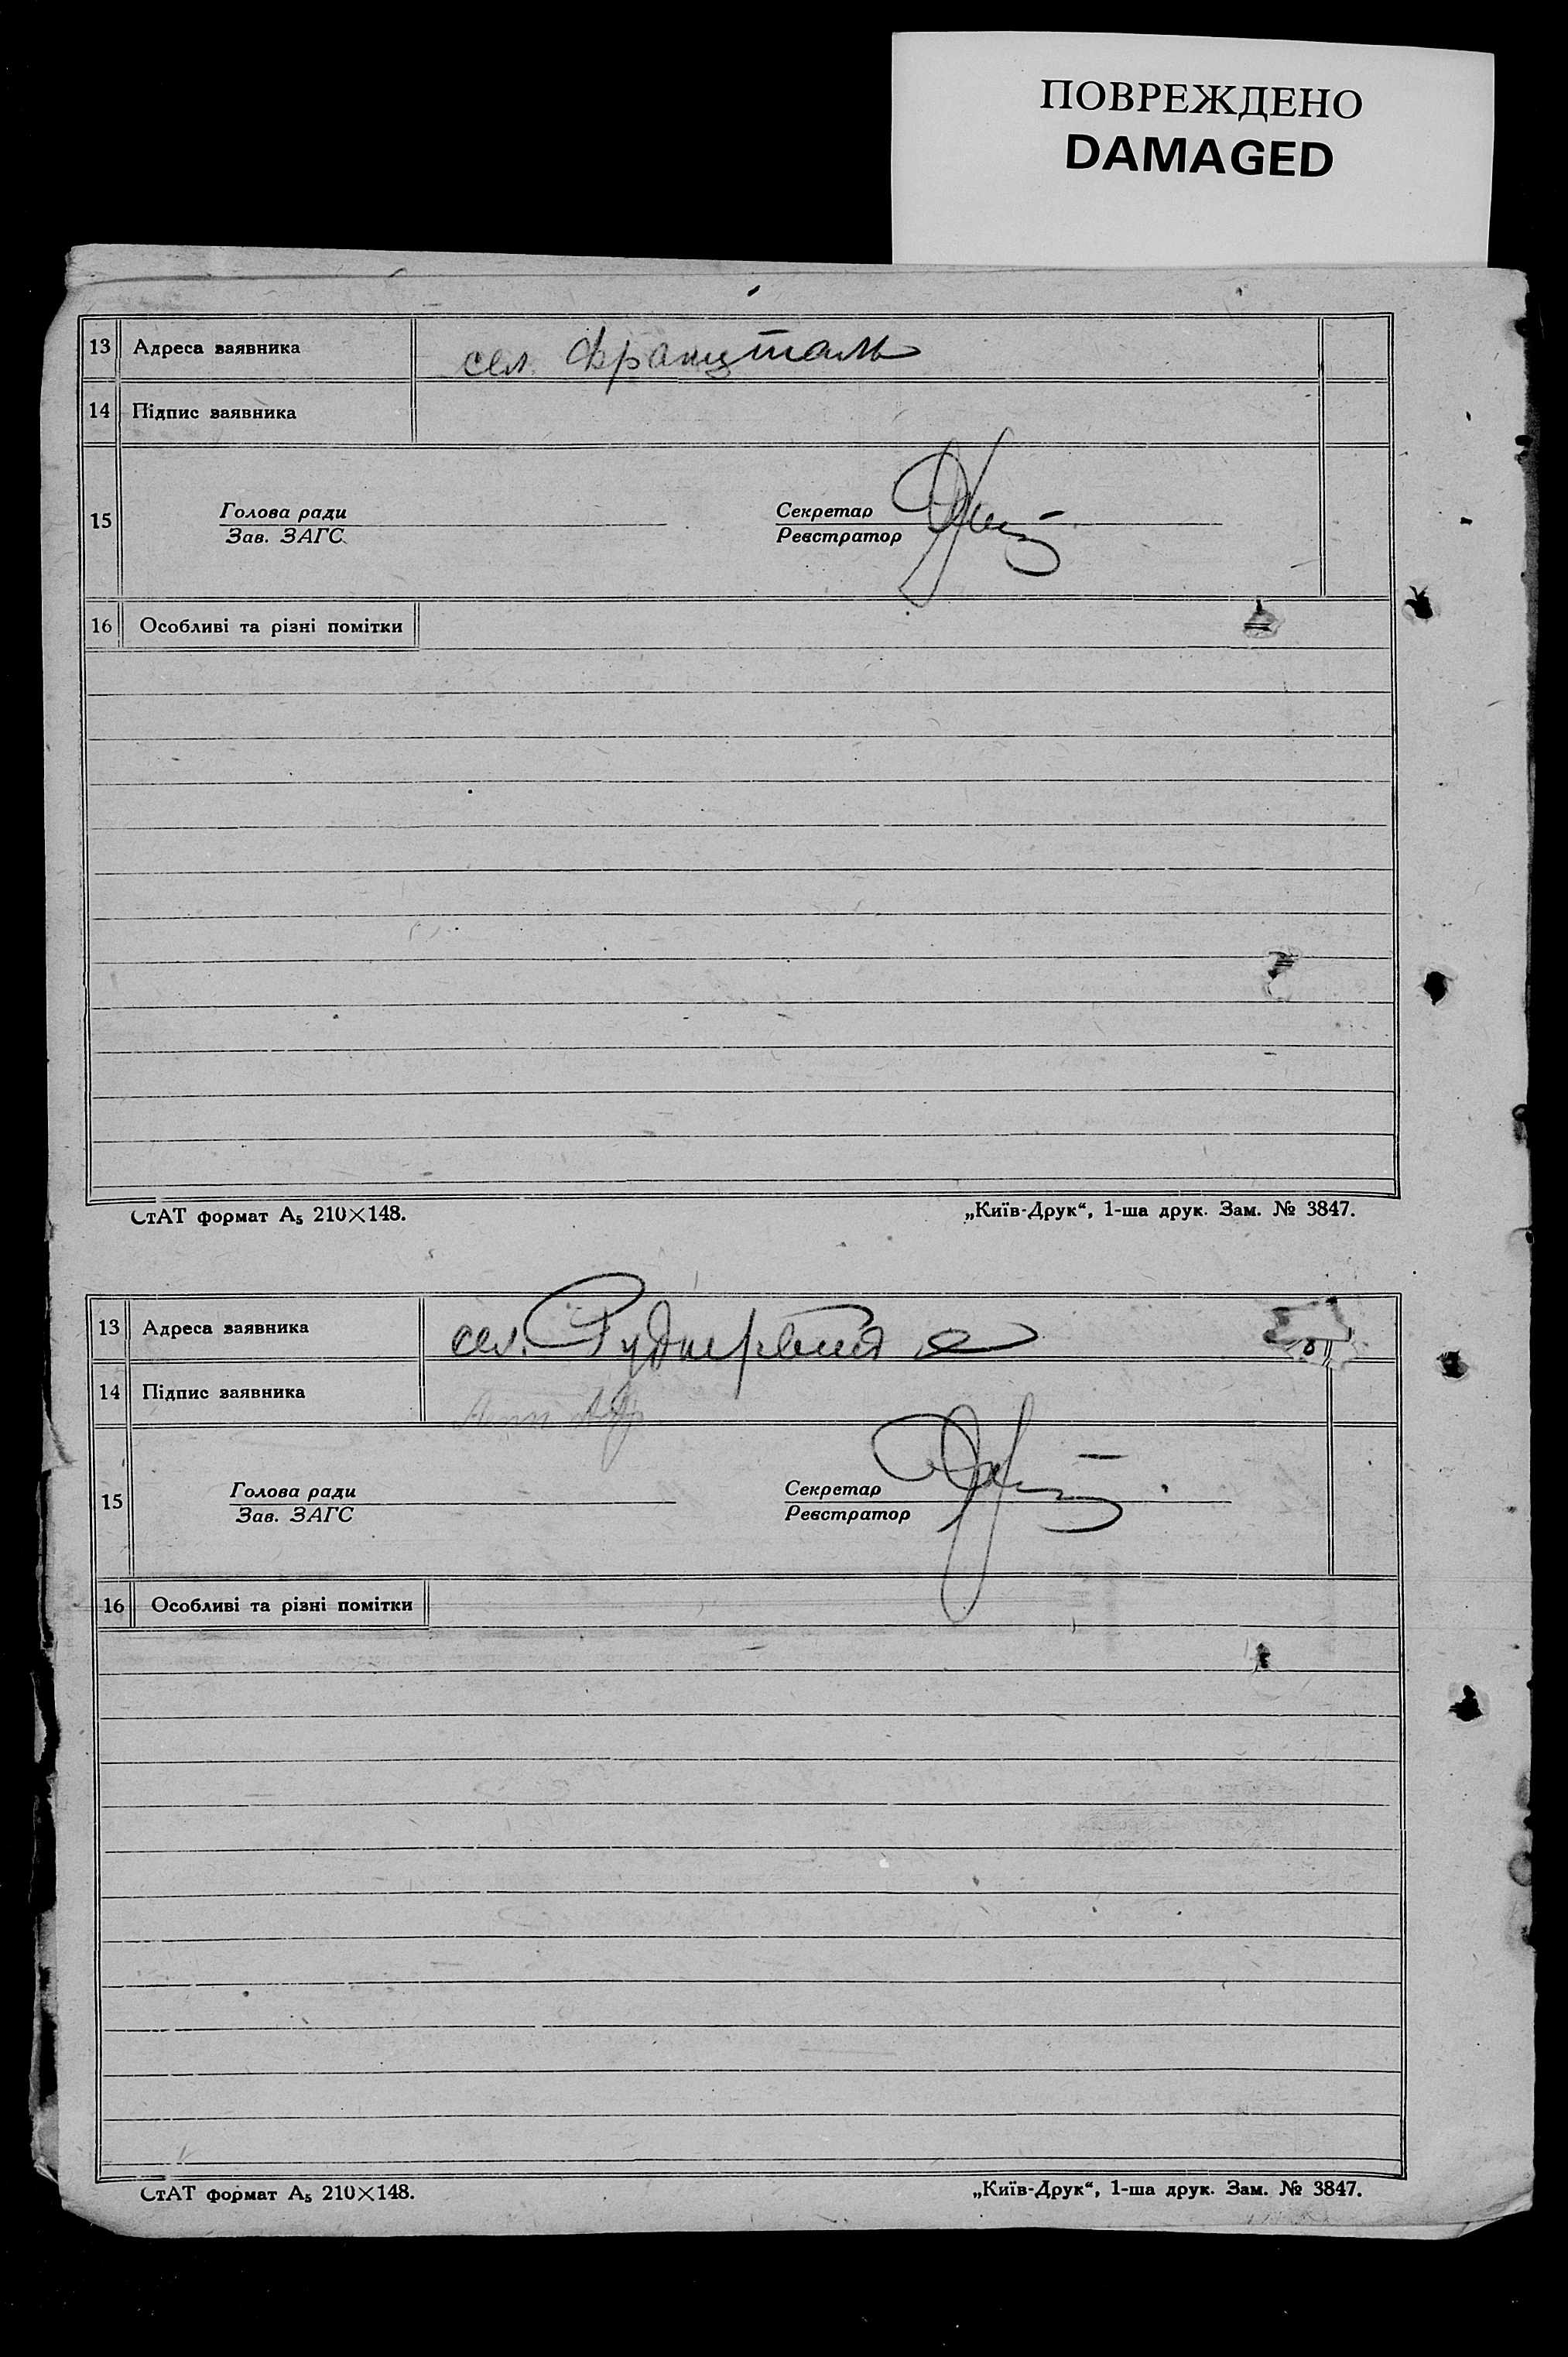 ПОВРЕЖДЕНО
DAMAGED
13 Адреса заявника сел. Францталь
14 Підпис заявника
15 Голова ради Секретар
Зав. ЗАГС. Реєстратор
16 Особливі та різні помітки
СтАТ формат А₅ 210×148. „Київ-Друк“, 1-ша друк. Зам. № 3847.
13 Адреса заявника сел. Руднервейд
14 Підпис заявника
15 Голова ради Секретар
Зав. ЗАГС Реєстратор
16 Особливі та різні помітки
СтАТ формат А₅ 210×148. „Київ-Друк“, 1-ша друк. Зам. № 3847.